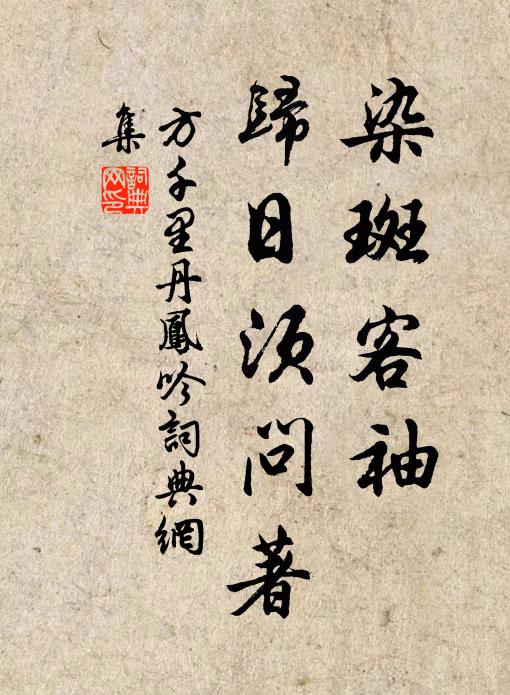 染斑客袖
歸日須問著
方千里丹鳳吟詞典網
集
詞典
网印